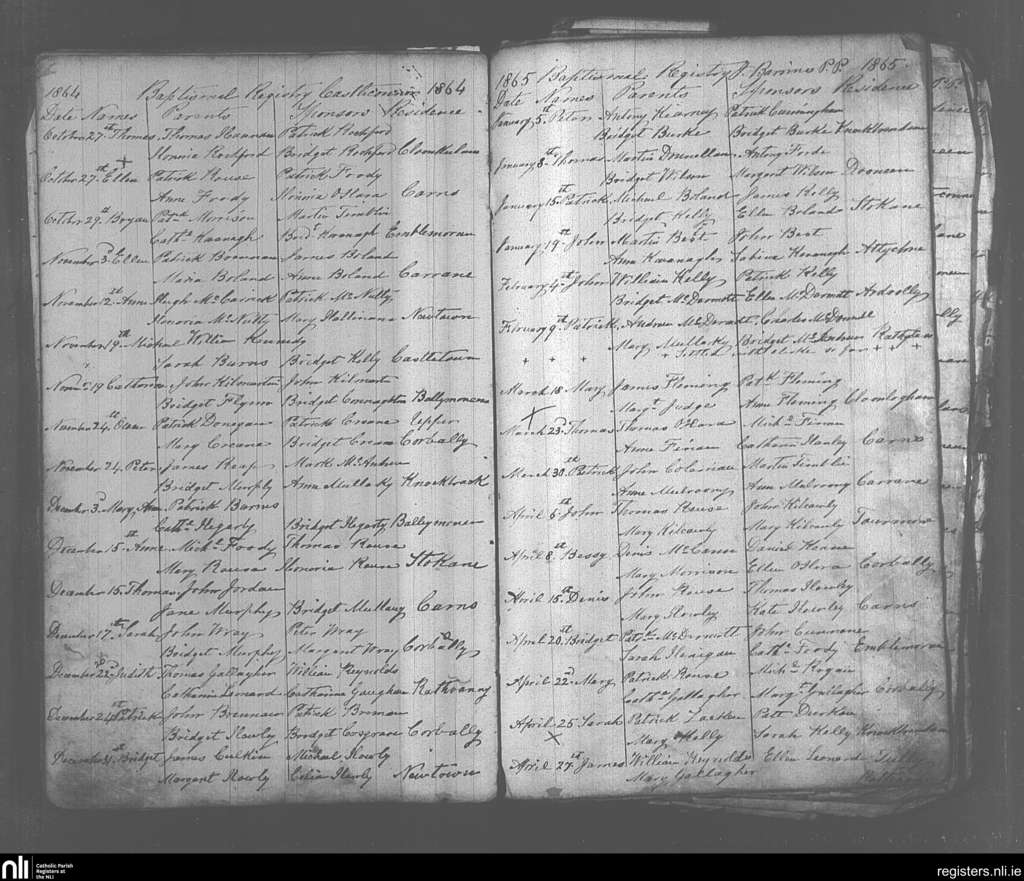 1864 Baptismal Registry Castleconnor 1864
Date Names Parents Sponsors Residence
October 27th Thomas Thomas Patrick Rochford
Honoria Rochford Bridget Rochford
October 27th Ellen Patrick Rouse Patrick Foody
Anne Foody Winnia O'Hara Carns
October 29th Bryan Patrick Morison Martin Timblin
Cath. Kavanagh Bridt Kavanagh Emblemoran
November 3d Ellen Patrick Brennan James Boland
Maria Boland Anne Boland Carrane
November 12th Anne Hugh McCormick Patrick McNulty
Honoria McNulty Mary Hallinan Newtown
November 19th Michael William Kennedy
Sarah Burns Bridget Kelly Castletown
Novem. 19 Catherine John Kilmartin John Kilmartin
Bridget Flynn Bridget Connaghton Ballymoneen
November 24th Patrick Donegan Patrick Creane Upper
Mary Creane Bridget Creane Corbally
November 24 Peter James Reap Mark McAndrew
Bridget Murphy Anne Mullaky Knockbrack
December 3d Mary Ann Patrick Barnes
Cath. Hegarty Bridget Hegarty Ballymoneen
December 15th Anne Michl Foody Thomas Rouse
Mary Rouse Honoria Rouse Stokane
December 15 Thomas John Jordan
Jane Murphy Bridget Mullany Carns
December 17th Sarah John Wray Peter Wray
Bridget Murphy Margaret Wray Corbally
December 22nd Judith Thomas Gallagher William Reynolds
Catharine Leonard Catharine Gaughan Rathvanny
December 24th Patrick John Brennan Patrick Brennan
Bridget Howly Bridget Cosgrave Corbally
December 31st Bridget James Durkin Michael Howly
Margaret Howly Celia Howly Newtown
1865 Baptismal Registry J. P.P. 1865
Date Names Parents Sponsors Residence
January 5th Peter Antony Kearney Patrick Cunningham
Bridget Burke Bridget Burke
January 8th Thomas Martin Donnellan Antony Forde
Bridget Wilson Margaret Wilson Dooneen
January 15th Patrick Michael Boland James Kelly
Bridget Kelly Ellen Boland Stokane
January 19th John Martin Best John Best
Anne Kavanagh Sabina Kavanagh Attychree
February 4th John William Kelly Patrick Kelly
Bridget McDermott Ellen McDermott Ardvolley
February 9th Patrick Andrew McDermott Charles McDonnell
Mary Mullaky Bridget
+ + + + Settled so far + + +
March 18 Mary James Fleming Patk Fleming
Margt Judge Anne Fleming Cloonloghan
March 23 Thomas Thomas O'Hara Michl
Anne Catharine Hanley Carns
March 30th Patrick John Coleman Martin Timblin
Anne Mulroony Ann Mulrony Carrane
April 6th John Thomas Rouse John Kilcawly
Mary Kilcawly Mary Kilcawly
April 8th Bessy Denis McCann Daniel
Mary Morrison Ellen O'Hara Corbally
April 15th Denis John Rouse Thomas Howley
Mary Howley Kate Howley Carns
April 20th Bridget Patrick McDermott John
Sarah Flanegan Cath. Foody Emblemoran
April 22nd Mary Patrick Rouse Michl Rogan
Cath. Gallagher Margt Gallagher Corbally
April 25 Sarah Patrick Larkin Patt Durkan
Mary Kelly Sarah Kelly
April 27th James William Reynolds Ellen Leonard
Mary Gallagher
nli Catholic Parish Registers at the NLI
registers.nli.ie